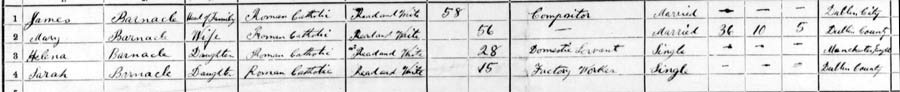 1 James Barnacle Head of Family Roman Catholic Read and Write 58 Compositor Married - - - Dublin City
2 Mary Barnacle Wife Roman Catholic Read and Write 56 - Married 36 10 5 Dublin County
3 Helena Barnacle Daughter Roman Catholic Read and Write 28 Domestic Servant Single - - - Manchester
4 Sarah Barnacle Daughter Roman Catholic Read and Write 15 Factory Worker Single - - - Dublin County